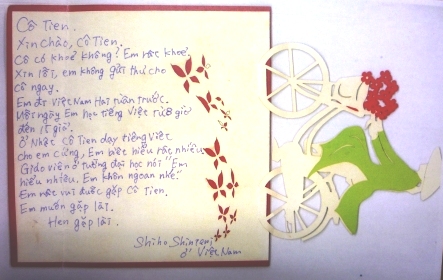 Cô Tien.
Xin chào, Cô Tien.
Cô có khoẻ không? Em rất khoẻ.
Xin lỗi, em không gửi thư cho
cô ngay.
Em đi Việt Nam Hai tuần trước.
Mỗi ngày Em học tiếng Việt từ 8 giờ
đến 15 giờ.
Ở Nhật Cô Tien dạy tiếng Việt
cho em Cứng, Em biết hiểu rất nhiều
Giáo viên ở trường đại học nói "Em
hiểu nhiều. Em khôn ngoan nhé."
Em rất vui được gặp Cô Tien.
Em muốn gặp lại.
Hẹn gặp lại.
Shiho
ở Việt Nam